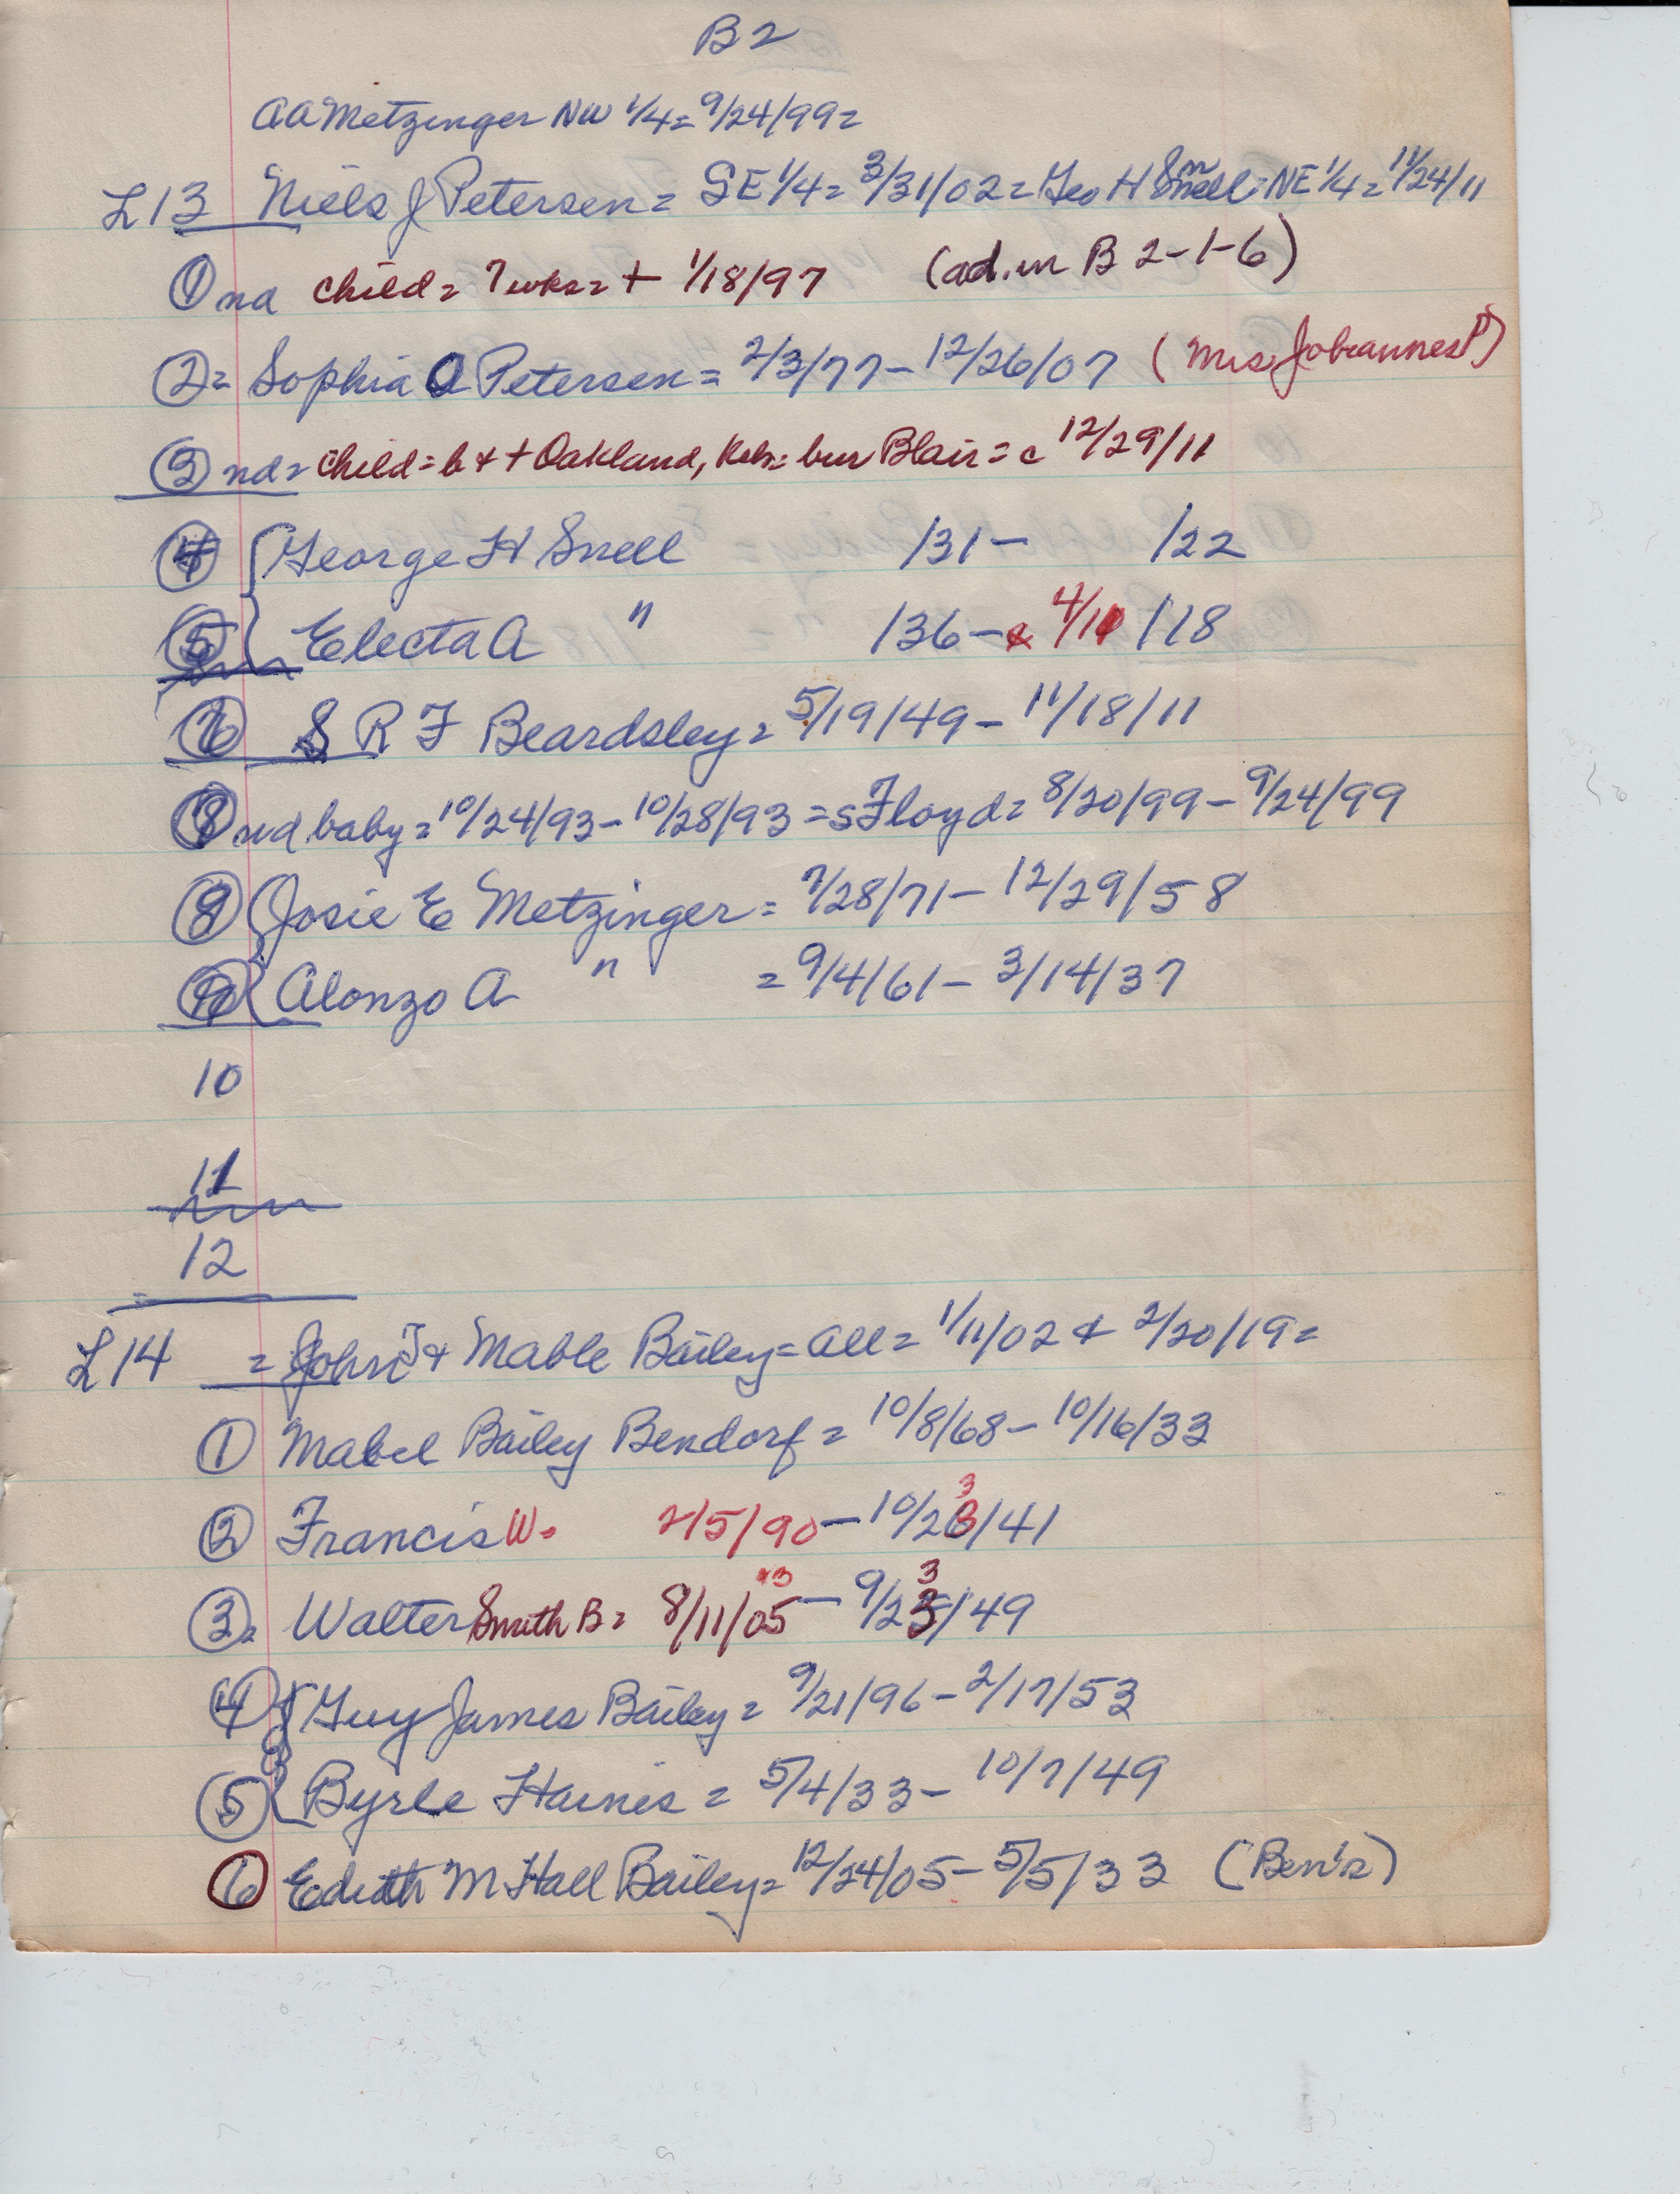 B2
AA Metzinger NW 1/4 = 9/24/99 =
L13 Niels J Petersen = SE 1/4 = 3/31/02 = Geo H Snell = NE 1/4 = 11/24/11
① nd child = 7 wks = + 1/18/97 (ad. in B 2-1-6)
② = Sophia O Petersen = 2/3/77 - 12/26/07 (Mrs Johannes P)
③ nd = child = b & + Oakland, Neb = bur Blair = c 12/29/11
④ { George H Snell /31 - /22
⑤ { Electa A " /36 - 4/11 /18
⑥ S R F Beardsley = 5/19/49 - 11/18/11
nd baby = 10/24/93 - 10/28/93 = s Floyd = 8/20/99 - 9/24/99
Josie E Metzinger = 7/28/71 - 12/29/58
{ Alonzo A " = 9/4/61 - 3/14/37
10
11
12
L14 = John J & Mable Bailey = all = 1/11/02 & 2/20/19 =
① Mabel Bailey Bendorf = 10/8/68 - 10/16/33
② Francis W. 2/5/90 - 10/23/41
③ = Walter Smith B = 8/11/05 - 9/23/49
④ { Guy James Bailey = 9/21/96 - 2/17/53
⑤ { Byrle Hainis = 5/4/33 - 10/7/49
⑥ Edith M Hall Bailey = 12/24/05 - 5/5/33 (Ben's)